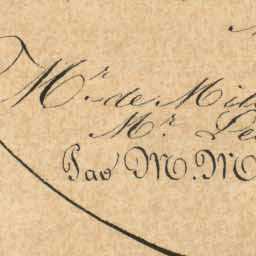 Mr. de Mil
Mr. Le
Pao M. M